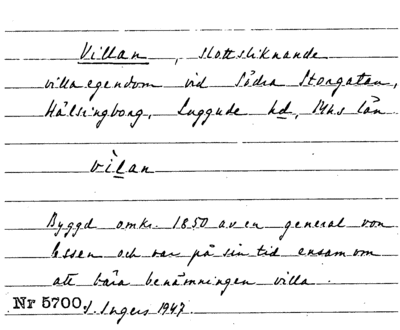 Villan, slottsliknande
villaegendom vid Södra Storgatan,
Hälsingborg, Luggude hd, Mhs län
vìlan
Byggd omkr. 1850 av en general von
Essen och var på sin tid ensam om
att bära benämningen villa.
Nr 5700. S. Ingers 1947.